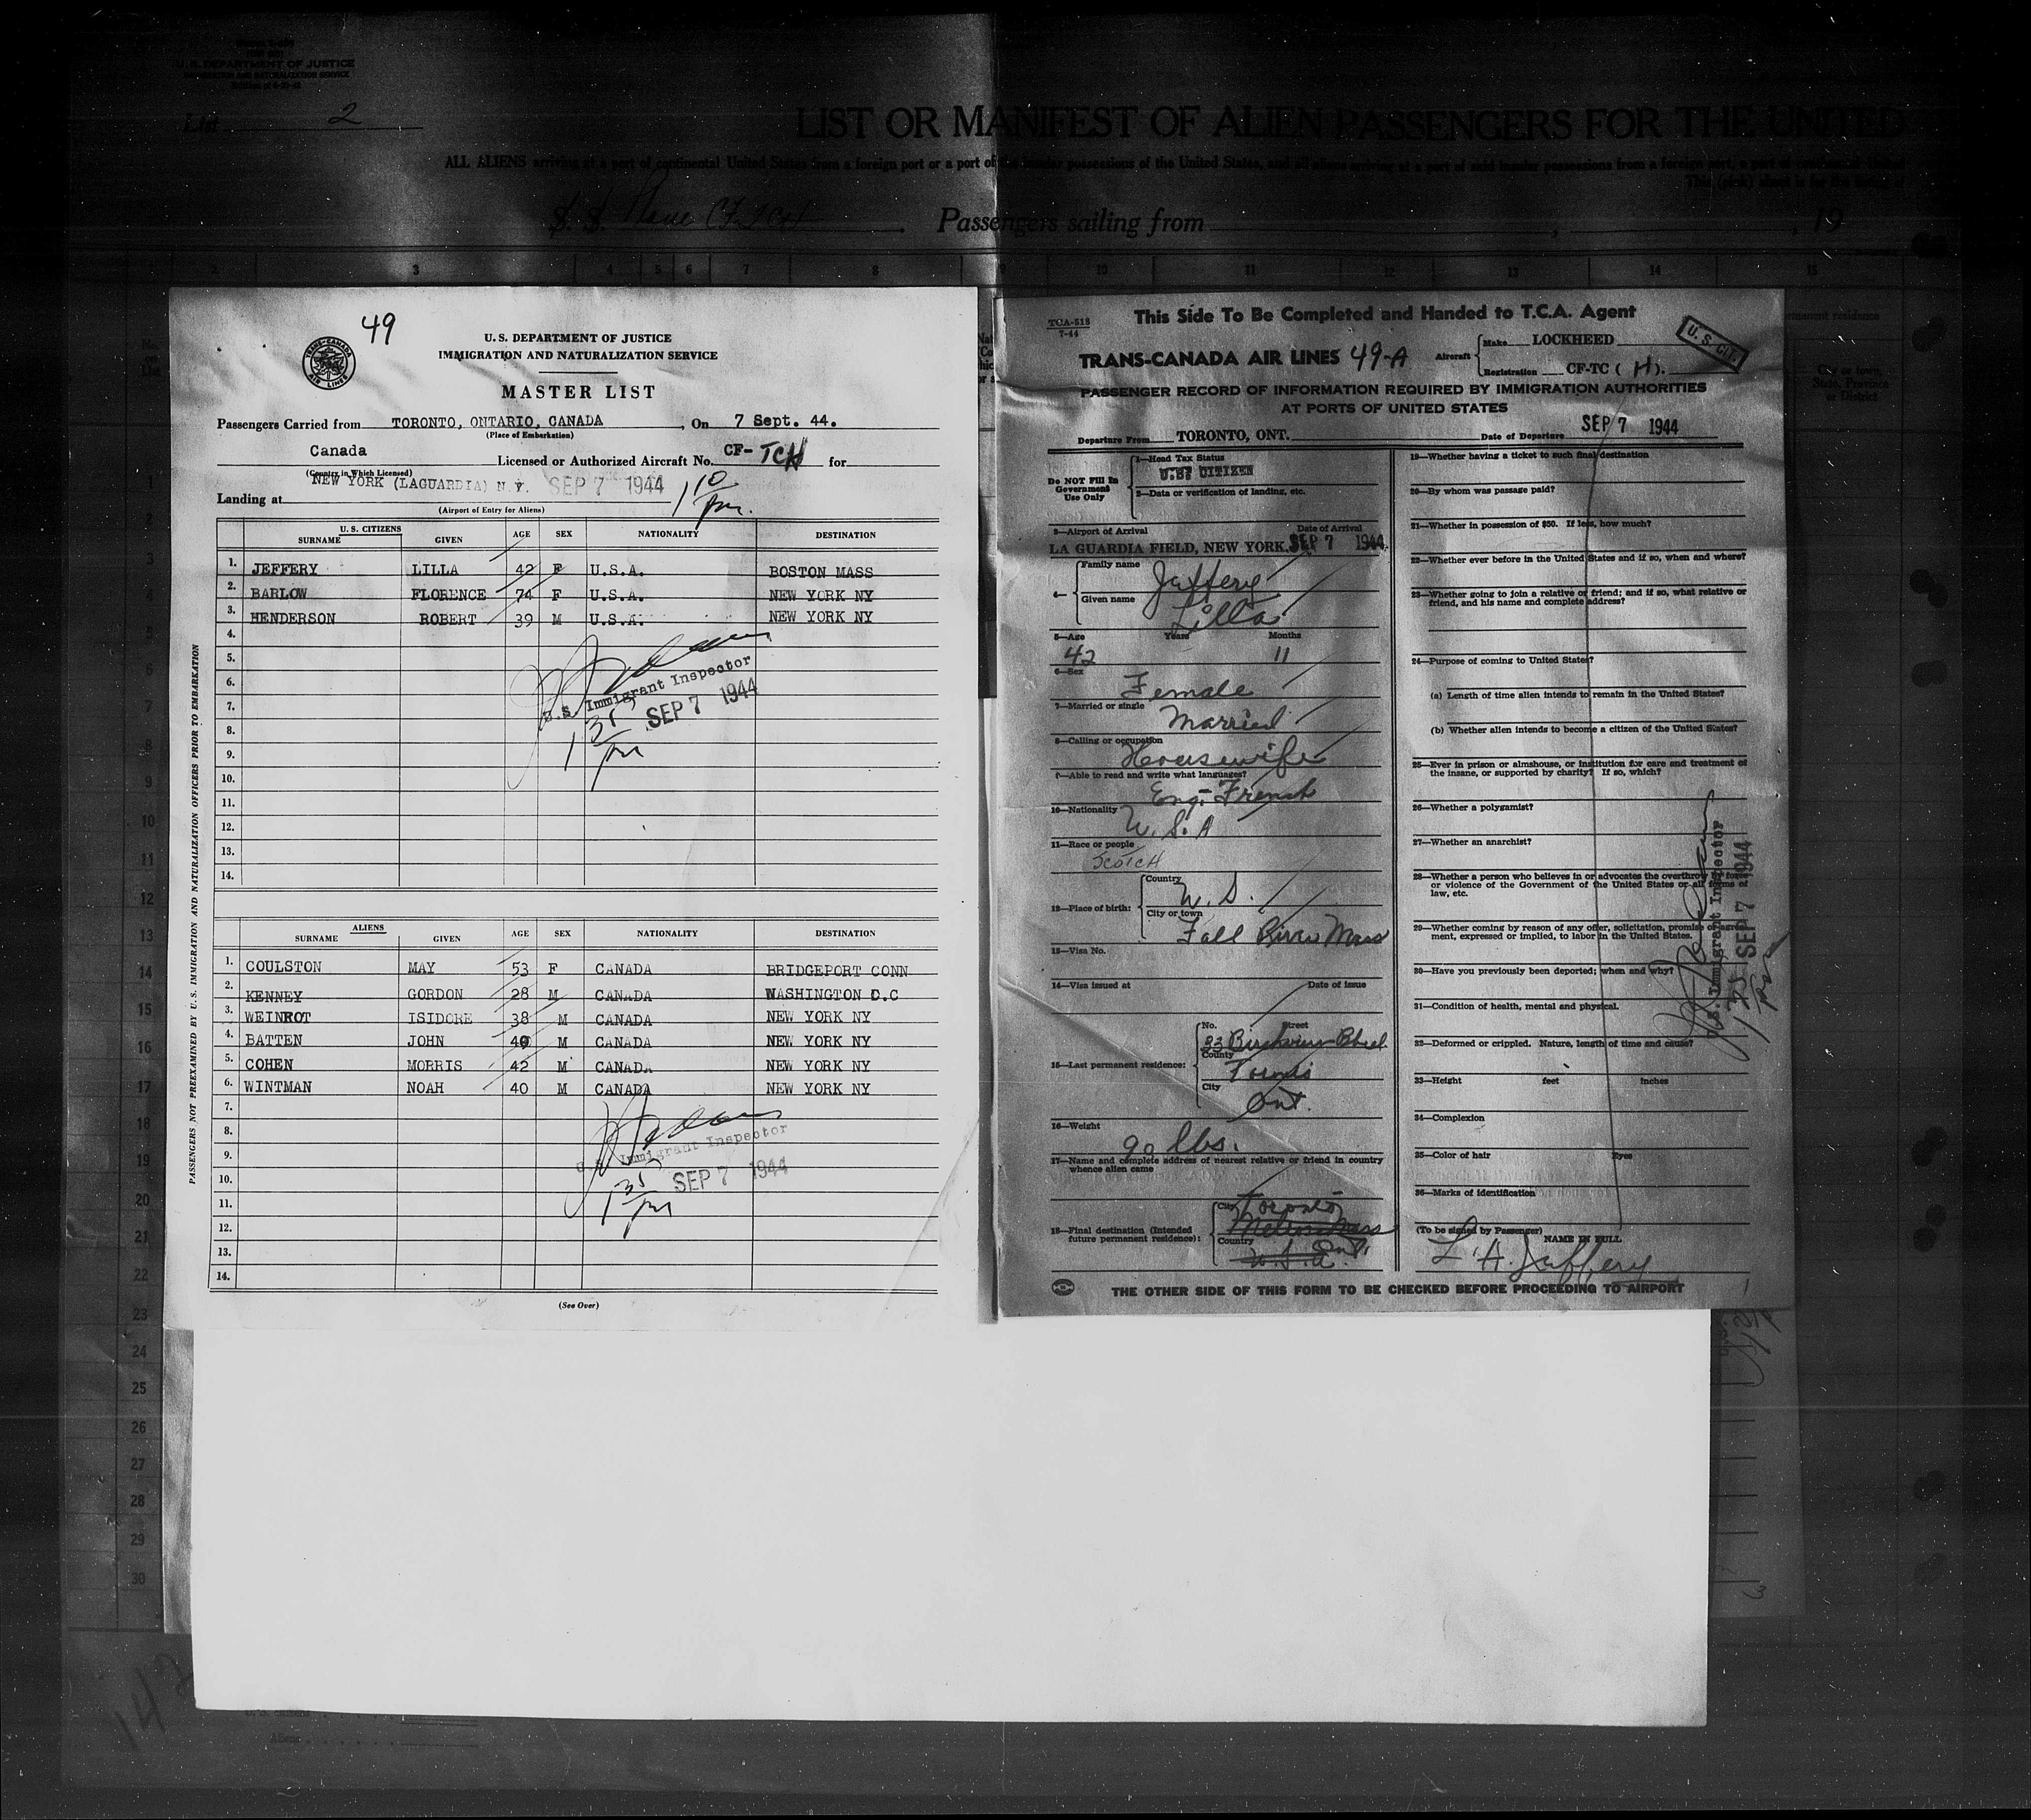 U. S. DEPARTMENT OF JUSTICE
IMMIGRATION AND NATURALIZATION SERVICE
List 2
LIST OR MANIFEST OF ALIEN PASSENGERS FOR THE UNITED
ALL ALIENS arriving at a port of continental United States from a foreign port or a port of the insular possessions of the United States, and all aliens arriving at a port of said insular possessions from a foreign port, a port of continental United
This (pink) sheet is for the listing of
S. S. Plane CFTCH Passengers sailing from , 19
2 3 4 5 6 7 8 10 11 12 13 14 15
49
TRANS-CANADA AIR LINES
U. S. DEPARTMENT OF JUSTICE
IMMIGRATION AND NATURALIZATION SERVICE
MASTER LIST
Passengers Carried from TORONTO, ONTARIO, CANADA, On 7 Sept. 44.
(Place of Embarkation)
Canada Licensed or Authorized Aircraft No. CF-TCH for
(Country in Which Licensed)
Landing at NEW YORK (LAGUARDIA) N.Y. SEP 7 1944 1 10 pm.
(Airport of Entry for Aliens)
U. S. CITIZENS
SURNAME GIVEN AGE SEX NATIONALITY DESTINATION
1. JEFFERY LILLA 42 F U.S.A. BOSTON MASS
2. BARLOW FLORENCE 74 F U.S.A. NEW YORK NY
3. HENDERSON ROBERT 39 M U.S.A. NEW YORK NY
4.
5.
6.
7.
8.
9.
10.
11.
12.
13.
14.
U.S. Immigrant Inspector
SEP 7 1944
1 35 pm
ALIENS
SURNAME GIVEN AGE SEX NATIONALITY DESTINATION
1. COULSTON MAY 53 F CANADA BRIDGEPORT CONN
2. KENNEY GORDON 28 M CANADA WASHINGTON D.C
3. WEINROT ISIDORE 38 M CANADA NEW YORK NY
4. BATTEN JOHN 40 M CANADA NEW YORK NY
5. COHEN MORRIS 42 M CANADA NEW YORK NY
6. WINTMAN NOAH 40 M CANADA NEW YORK NY
7.
8.
9.
10.
11.
12.
13.
14.
U.S. Immigrant Inspector
SEP 7 1944
1 35 pm
(See Over)
PASSENGERS NOT PREEXAMINED BY U.S. IMMIGRATION AND NATURALIZATION OFFICERS PRIOR TO EMBARKATION
TCA-518
7-44
This Side To Be Completed and Handed to T.C.A. Agent
TRANS-CANADA AIR LINES 49-A
Aircraft Make LOCKHEED
Registration CF-TC ( H ).
U. S. CIT.
PASSENGER RECORD OF INFORMATION REQUIRED BY IMMIGRATION AUTHORITIES
AT PORTS OF UNITED STATES
Departure From TORONTO, ONT. Date of Departure SEP 7 1944
Do NOT Fill In Government Use Only
1—Head Tax Status
U.S. CITIZEN
2—Data or verification of landing, etc.
3—Airport of Arrival Date of Arrival
LA GUARDIA FIELD, NEW YORK. SEP 7 1944
4— Family name Jeffery
Given name Lilla
5—Age Years Months
42 11
6—Sex
Female
7—Married or single
Married
8—Calling or occupation
Housewife
9—Able to read and write what languages?
Eng- French
10—Nationality
U. S. A
11—Race or people
SCOTCH
12—Place of birth: Country U. S.
City or town
Fall River Mass
13—Visa No.
14—Visa issued at Date of issue
15—Last permanent residence: No. Street
33 Birchview Blvd
County
Toronto
City
Ont.
16—Weight
90 lbs.
17—Name and complete address of nearest relative or friend in country
whence alien came
18—Final destination (Intended
future permanent residence): City Toronto
Country
Ont.
U.S.A.
19—Whether having a ticket to such final destination
20—By whom was passage paid?
21—Whether in possession of $50. If less, how much?
22—Whether ever before in the United States and if so, when and where?
23—Whether going to join a relative or friend; and if so, what relative or
friend, and his name and complete address?
24—Purpose of coming to United States?
(a) Length of time alien intends to remain in the United States?
(b) Whether alien intends to become a citizen of the United States?
25—Ever in prison or almshouse, or institution for care and treatment of
the insane, or supported by charity? If so, which?
26—Whether a polygamist?
27—Whether an anarchist?
28—Whether a person who believes in or advocates the overthrow by force
or violence of the Government of the United States or all forms of
law, etc.
29—Whether coming by reason of any offer, solicitation, promise or agree-
ment, expressed or implied, to labor in the United States.
30—Have you previously been deported; when and why?
31—Condition of health, mental and physical.
32—Deformed or crippled. Nature, length of time and cause?
33—Height feet inches
34—Complexion
35—Color of hair Eyes
36—Marks of identification
(To be signed by Passenger) NAME IN FULL
L. A. Jeffery
U.S. Immigrant Inspector
SEP 7 1944
1 35 pm
THE OTHER SIDE OF THIS FORM TO BE CHECKED BEFORE PROCEEDING TO AIRPORT